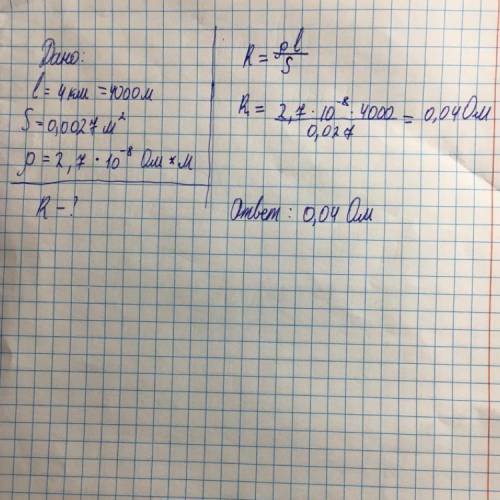 Дано:
l = 4 км = 4000 м
S = 0,0027 м²
ρ = 2,7 · 10⁻⁸ Ом × м
R - ?
R = ρl / S
R = 2,7 · 10⁻⁸ · 4000 / 0,027 = 0,04 Ом
Ответ: 0,04 Ом